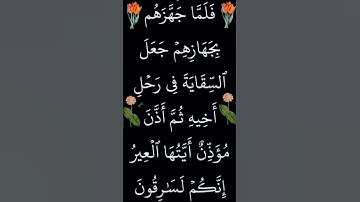 فَلَمَّا جَهَّزَهُم
بِجَهَازِهِمۡ جَعَلَ
ٱلسِّقَايَةَ فِى رَحۡلِ
أَخِيهِ ثُمَّ أَذَّنَ
مُؤَذِّنٌ أَيَّتُهَا ٱلۡعِيرُ
إِنَّكُمۡ لَسَـٰرِقُونَ